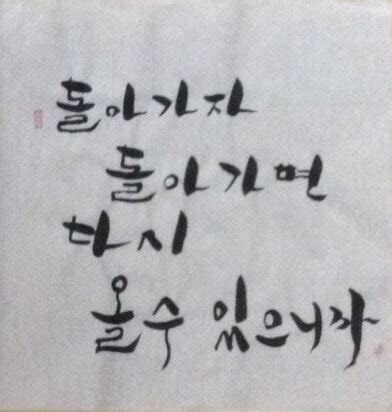 돌아가자
돌아가면
다시
올수 있으니까